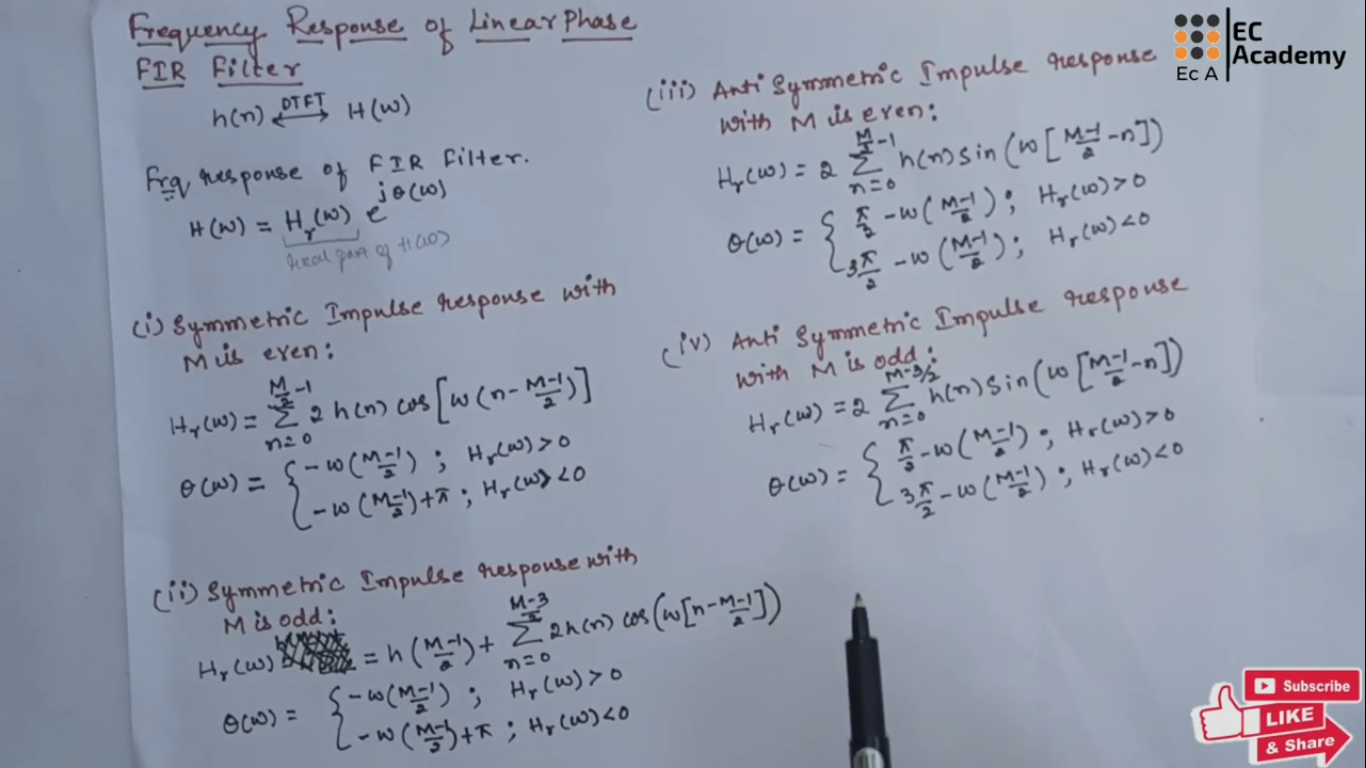 Frequency Response of Linear Phase
FIR Filter
h(n) <-DTFT-> H(w)
Frq response of FIR Filter.
H(w) = H_r(w) e^{jθ(w)}
Real part of H(w)
(i) Symmetric Impulse response with
M is even:
H_r(w) = Σ_{n=0}^{M/2 -1} 2 h(n) cos[w(n - (M-1)/2)]
θ(w) = { -w((M-1)/2) ; H_r(w) > 0
-w((M-1)/2) + π ; H_r(w) < 0
(ii) Symmetric Impulse response with
M is odd:
H_r(w) = h((M-1)/2) + Σ_{n=0}^{(M-3)/2} 2h(n) cos(w[n - (M-1)/2])
θ(w) = { -w((M-1)/2) ; H_r(w) > 0
-w((M-1)/2) + π ; H_r(w) < 0
(iii) Anti Symmetric Impulse response
with M is even:
H_r(w) = 2 Σ_{n=0}^{M/2 -1} h(n) sin(w[(M-1)/2 - n])
θ(w) = { π/2 - w((M-1)/2) ; H_r(w) > 0
3π/2 - w((M-1)/2) ; H_r(w) < 0
(iv) Anti Symmetric Impulse response
with M is odd:
H_r(w) = 2 Σ_{n=0}^{M-3/2} h(n) sin(w[(M-1)/2 - n])
θ(w) = { π/2 - w((M-1)/2) ; H_r(w) > 0
3π/2 - w((M-1)/2) ; H_r(w) < 0
EC
Academy
Ec A
Subscribe
LIKE
& Share